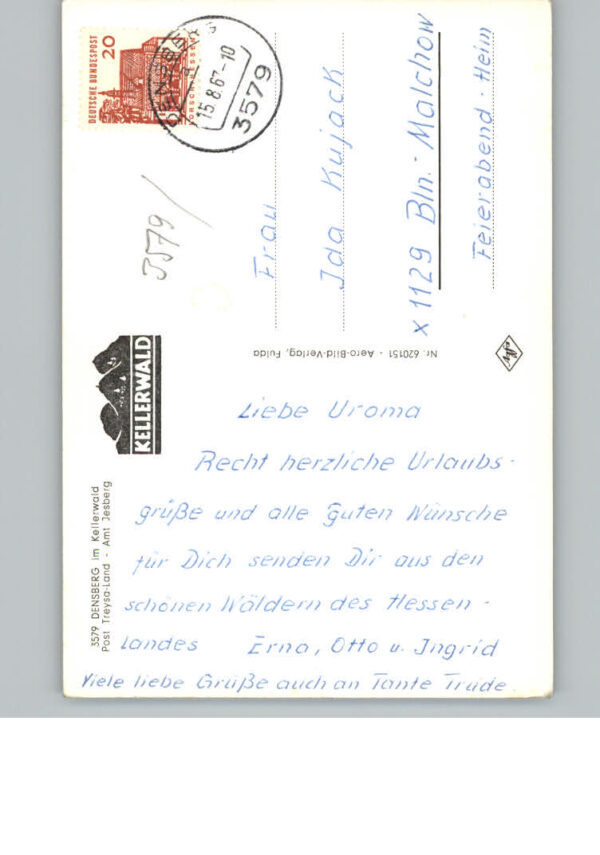 3579 DENSBERG im Kellerwald
Post Treysa-Land - Amt Jesberg
KELLERWALD
Liebe Uroma
Recht herzliche Urlaubs-
grüße und alle guten Wünsche
für Dich senden Dir aus den
schönen Wäldern des Hessen-
landes Erna, Otto u. Ingrid
Viele liebe Grüße auch an Tante Trude.
Nr. 620151 · Aero-Bild-Verlag, Fulda
3579
DEUTSCHE BUNDESPOST
20
LORSCH/HESSEN
DENSBERG
15.8.67-10
3579
Frau
Ida Kujack
x 1129 Bln.-Malchow
Feierabend-Heim